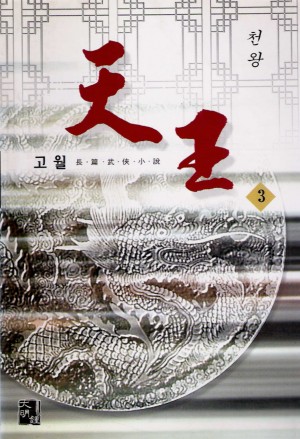 천왕
天王
고월 長·篇·武·俠·小·說
3
大明鍾